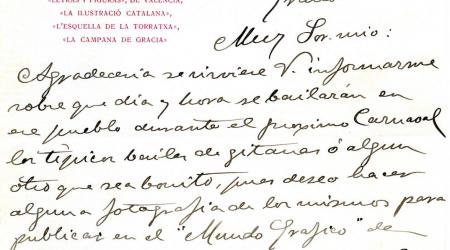 «LETRAS Y FIGURAS», DE VALENCIA,
«LA ILUSTRACIÓ CATALANA»,
«L'ESQUELLA DE LA TORRATXA»,
«LA CAMPANA DE GRACIA»
Muy Sor. mio:
Agradeceria se sirviere V. informarme
sobre que dia y hora se bailarán en
ese pueblo durante el proximo Carnaval
los típicos bailes de gitanas ó algun
otro que sea bonito, pues deseo hacer
alguna fotografia de los mismos para
publicar en el "Mundo Grafico" de